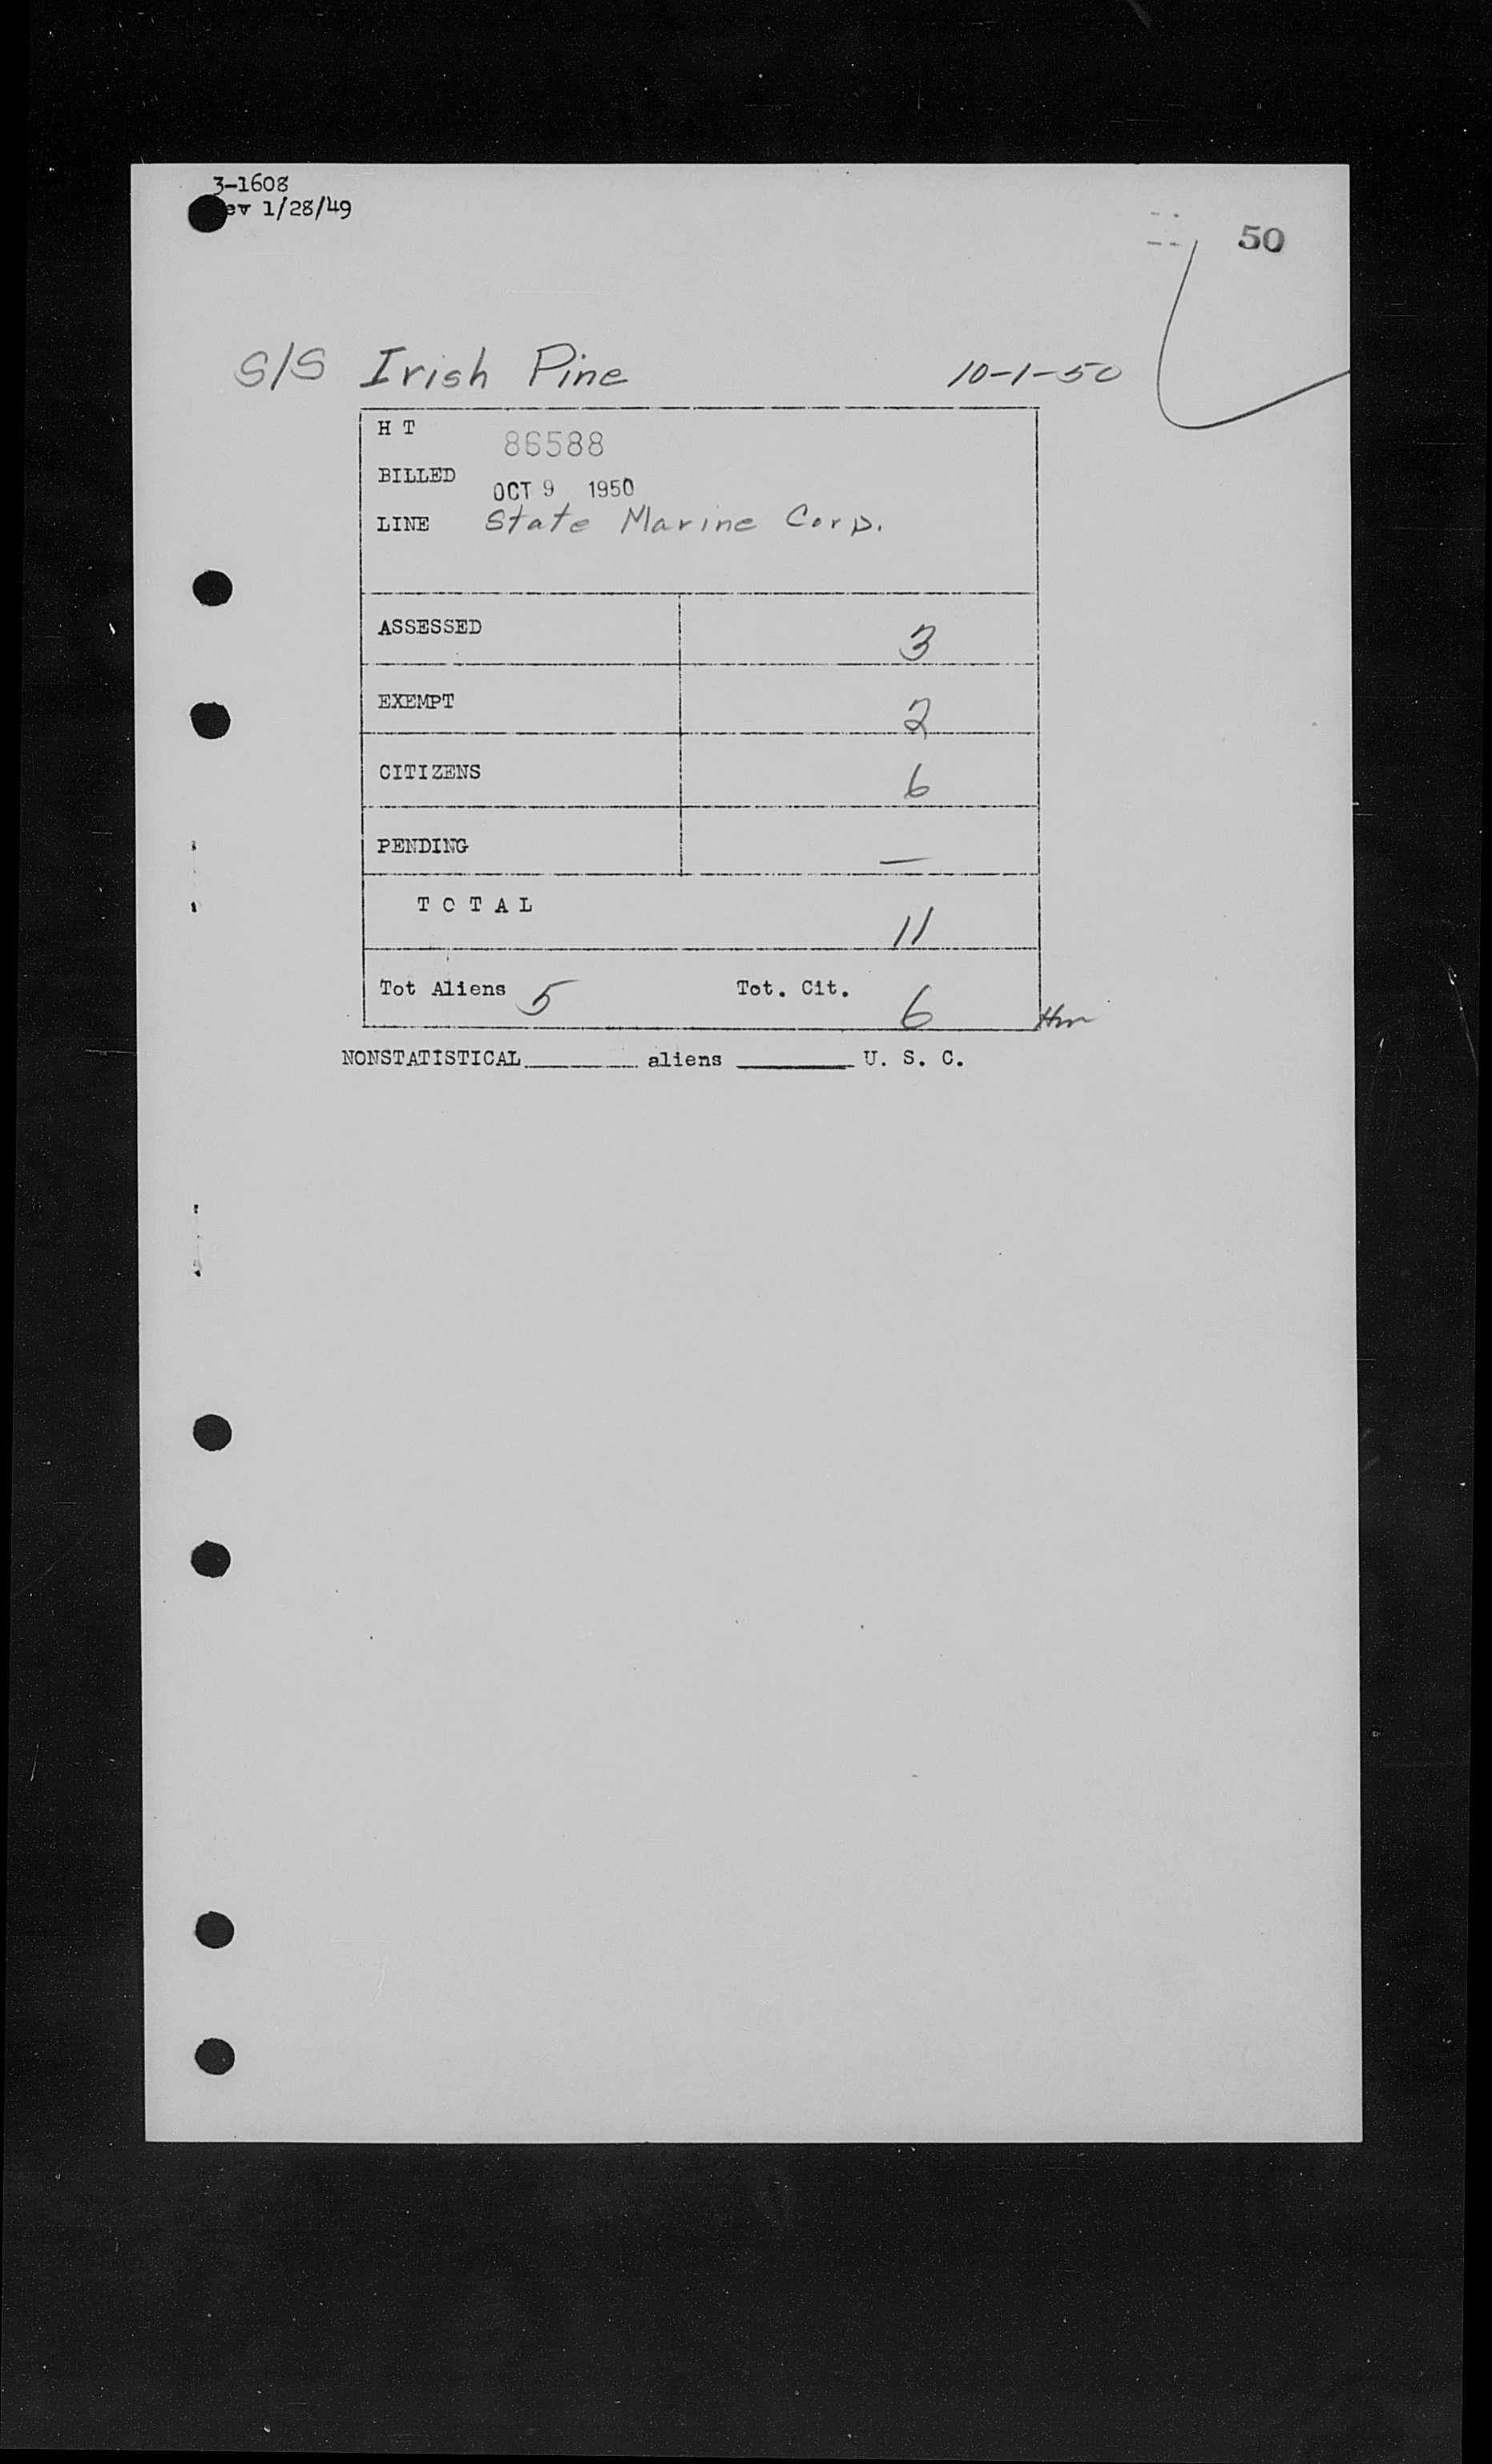 3-1608
ev 1/28/49
50
S/S Irish Pine 10-1-50
H T 86588
BILLED OCT 9 1950
LINE State Marine Corp.
ASSESSED 3
EXEMPT 2
CITIZENS 6
PENDING —
TOTAL 11
Tot Aliens 5 Tot. Cit. 6
NONSTATISTICAL ______ aliens ______ U. S. C.